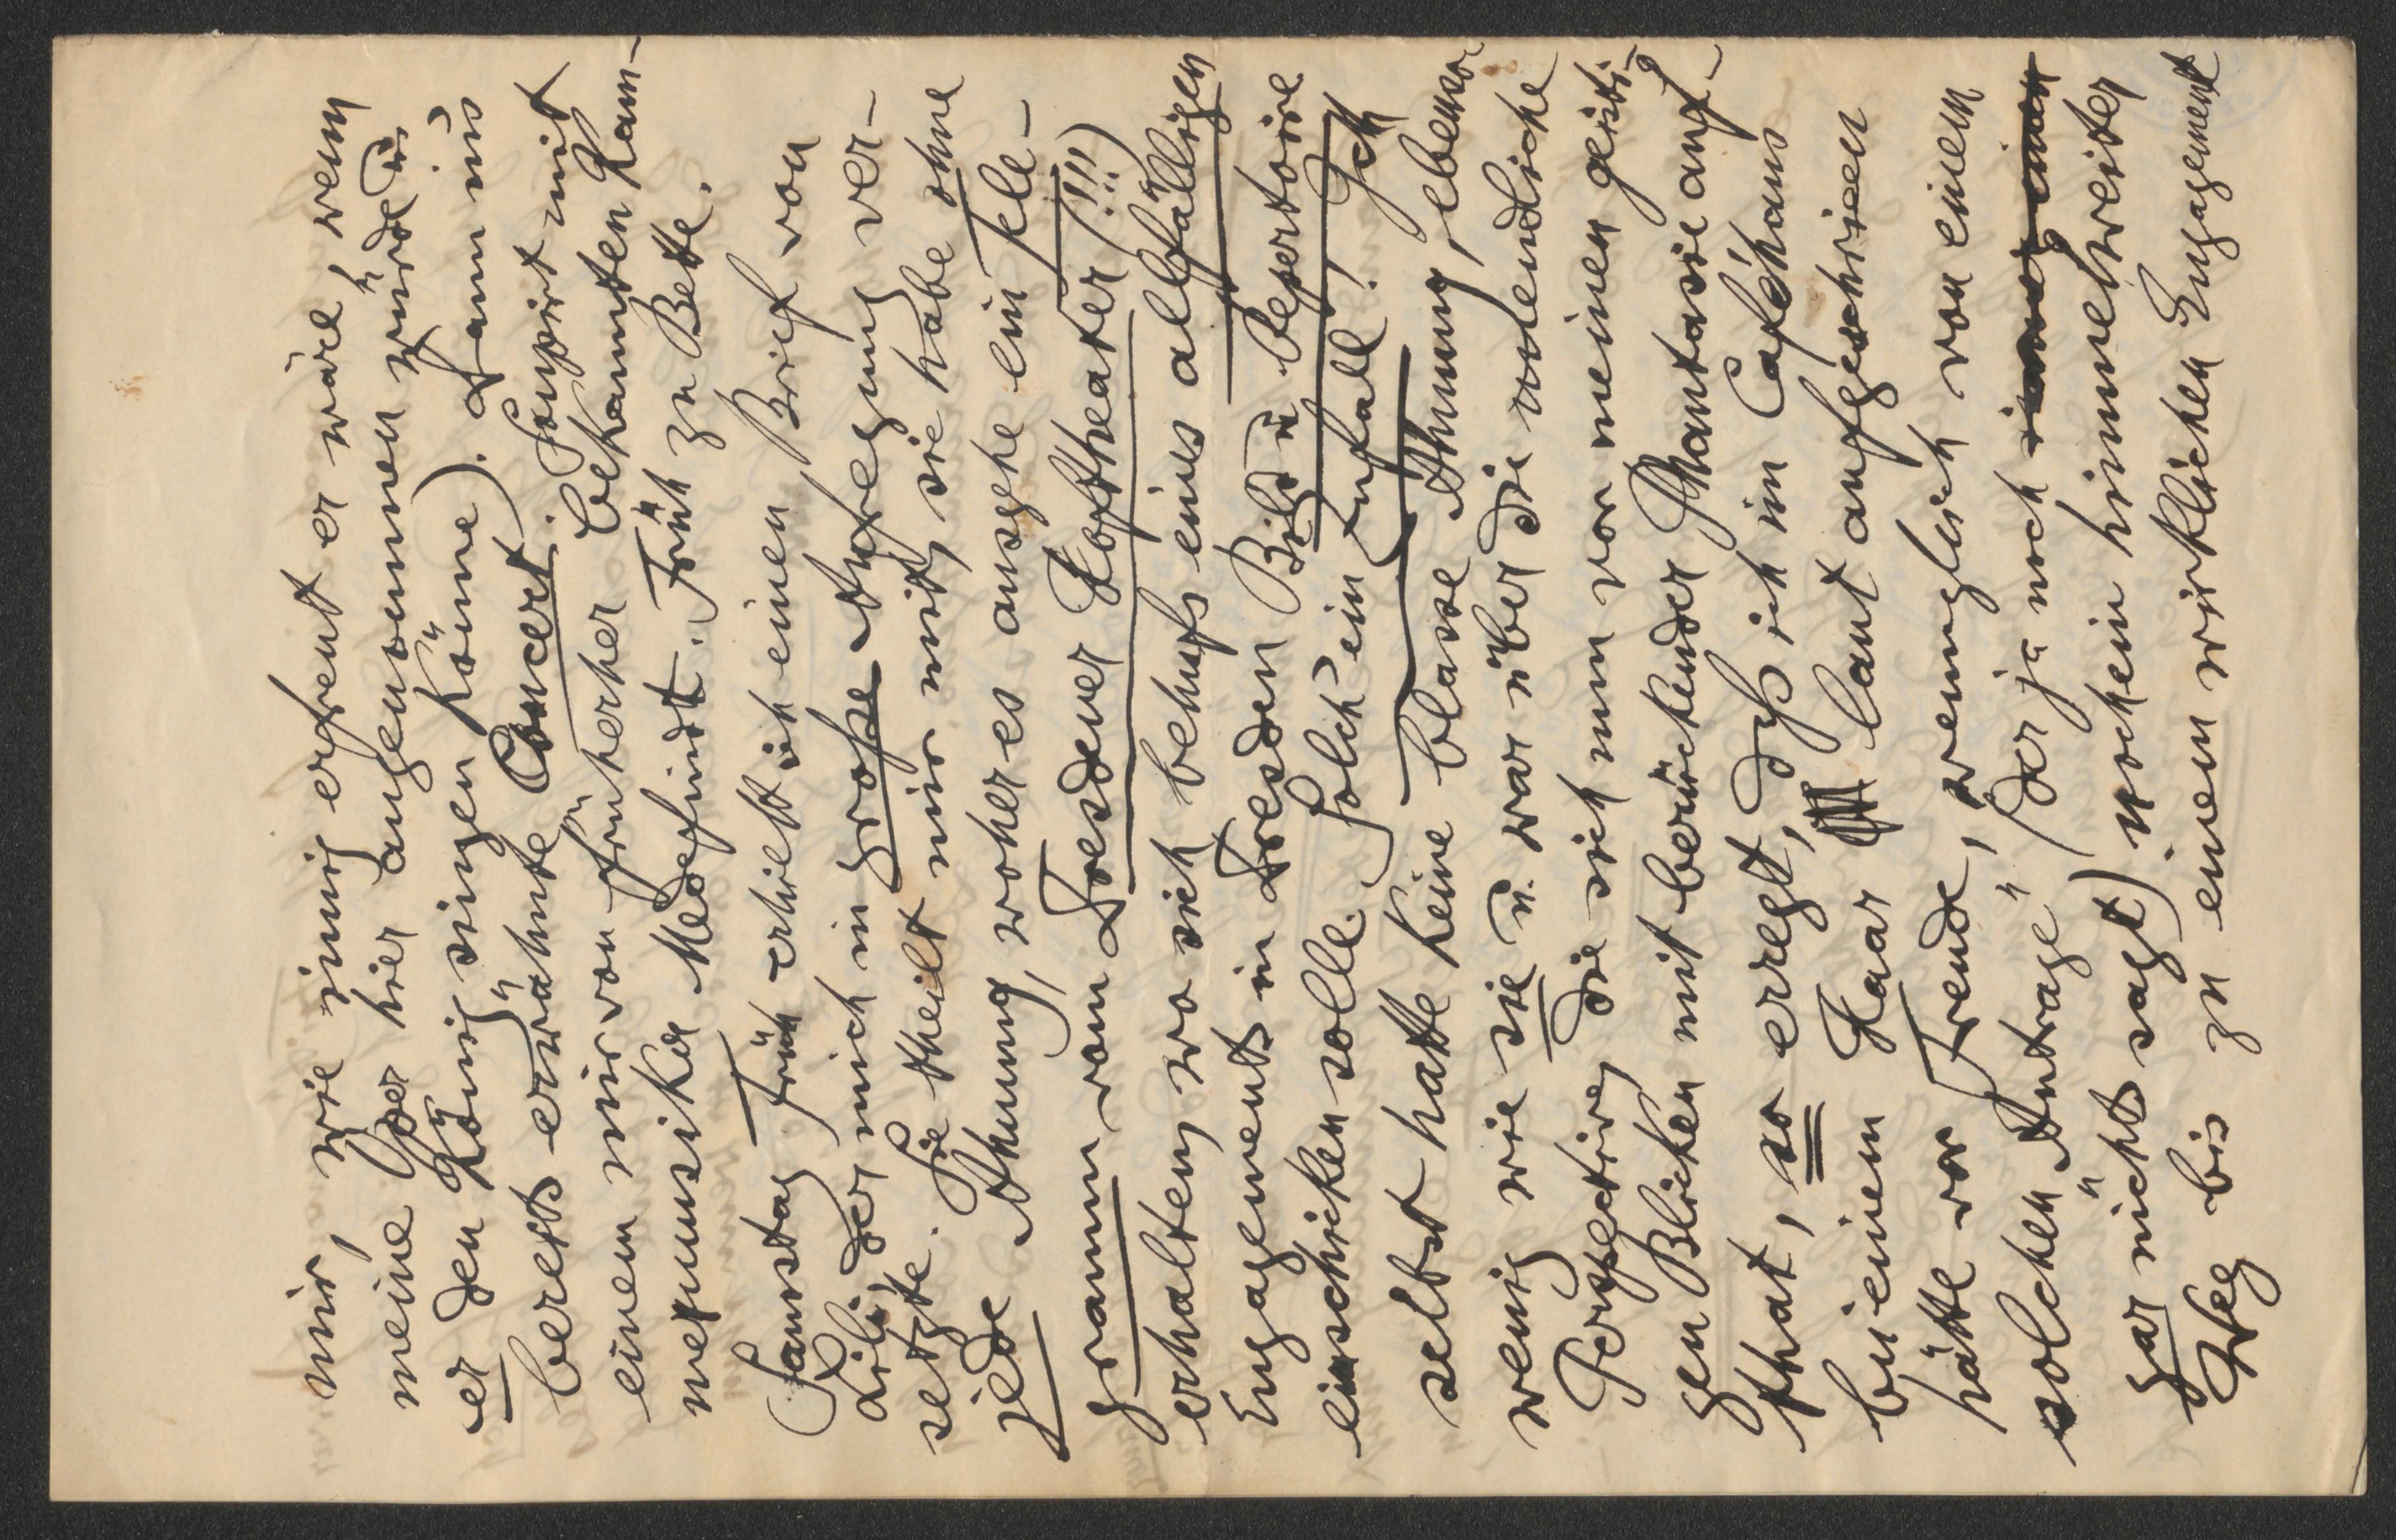 mir, wie innig erfreut er wäre, wenn
meine Oper hier angenommen würde u.
er den König singen könne). Dann ins
bereits erwähnte Concert. Soupirt mit
einem mir von früherher bekannten Kam-
mermusiker Medefindt. Früh zu Bette.
Samstag früh erhielt ich einen Brief von
Lili, der mich in große Aufregung ver-
setzte. Sie theilt mir mit, sie habe ohne
jede Ahnung, woher es ausgehe ein Tele-
gramm vom Dresdener Hoftheater (!!!)
erhalten, wo sich behufs eines allfälligen
Engagements in Dresden Bild u. Repertoire
einschicken solle. Solch' ein Zufall! Ich
selbst hatte keine blasse Ahnung, ebenso
wenig wie sie u. war über die unendliche
Perspective, die sich nun vor meinen geisti-
gen Blicken mit berückender Phantasie auf-
that, so erregt, daß ich im Caféhaus
bei einem Haar laut aufgeschrieen
hätte vor Freude, wenngleich von einem
solchen „Antrage" (der ja noch immer einen
gar nichts sagt) noch ein himmelweiter
Weg bis zu einem wirklichen Engagement